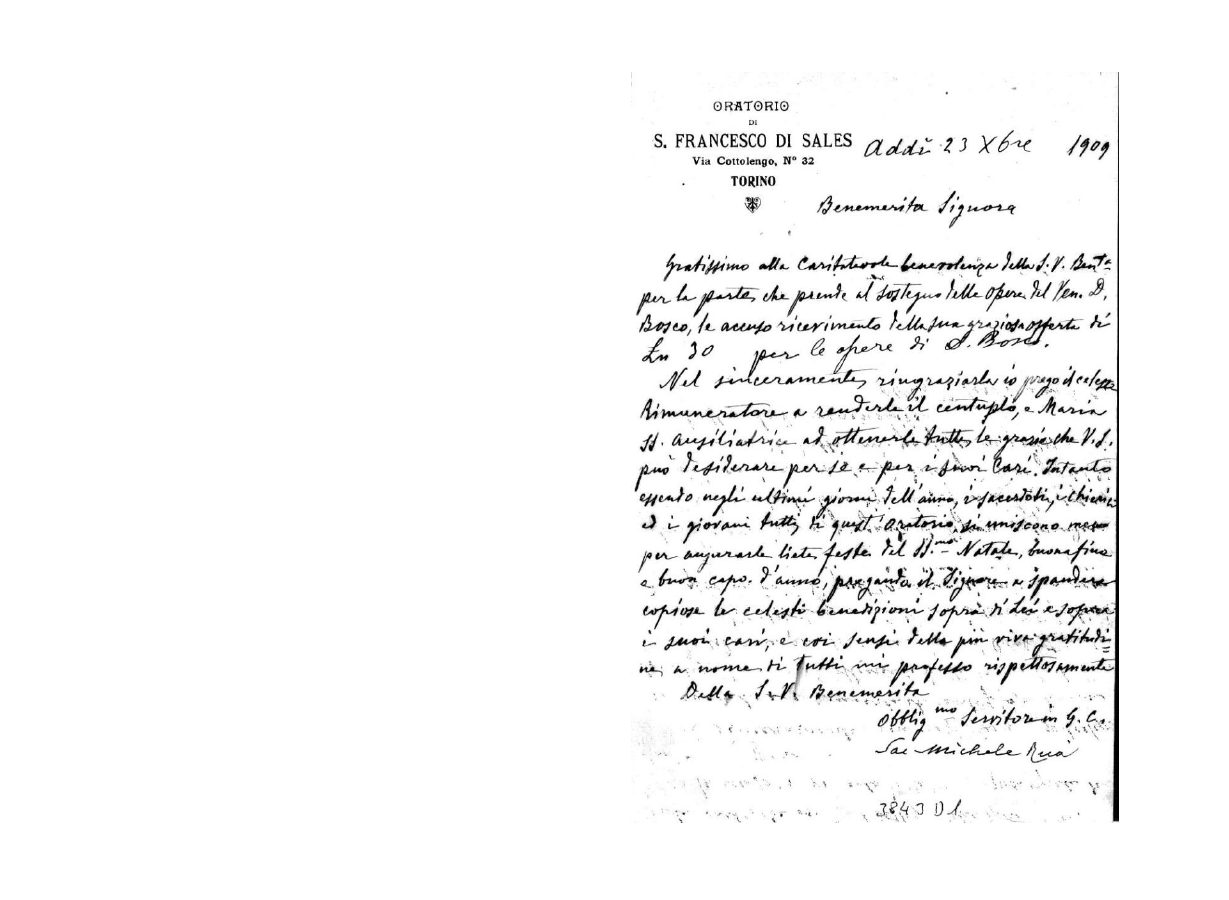 ORATORIO
DI
S. FRANCESCO DI SALES
Via Cottolengo, Nº 32
TORINO
Addì 23 Xbre 1909
Benemerita Signora
Gratissimo alla Caritatevole benevolenza della S. V. Benta
per la parte che prende al sostegno delle Opere del Ven. D.
Bosco, le accuso ricevimento della sua graziosa offerta di
Ln 30 per le opere di D. Bosco.
Nel sinceramente ringraziarla io prego il celeste
Rimuneratore a renderle il centuplo, e Maria
SS. Ausiliatrice ad ottenerle tutte le grazie che V. S.
può desiderare per sé e per i suoi Cari. Intanto
essendo negli ultimi giorni dell'anno, i sacerdoti, i chierici
ed i giovani tutti di quest'Oratorio, si uniscono meco
per augurarle liete feste del SS.mo Natale, buona fine
e buon capo d'anno, pregando il Signore a spandere
copiose le celesti benedizioni sopra di Lei e sopra
i suoi cari, e coi sensi della più viva gratitudi=
ne, a nome di tutti mi professo rispettosamente
Della S. V. Benemerita
Obblig mo Servitore in G. C.
Sac Michele Rua
3843 D1